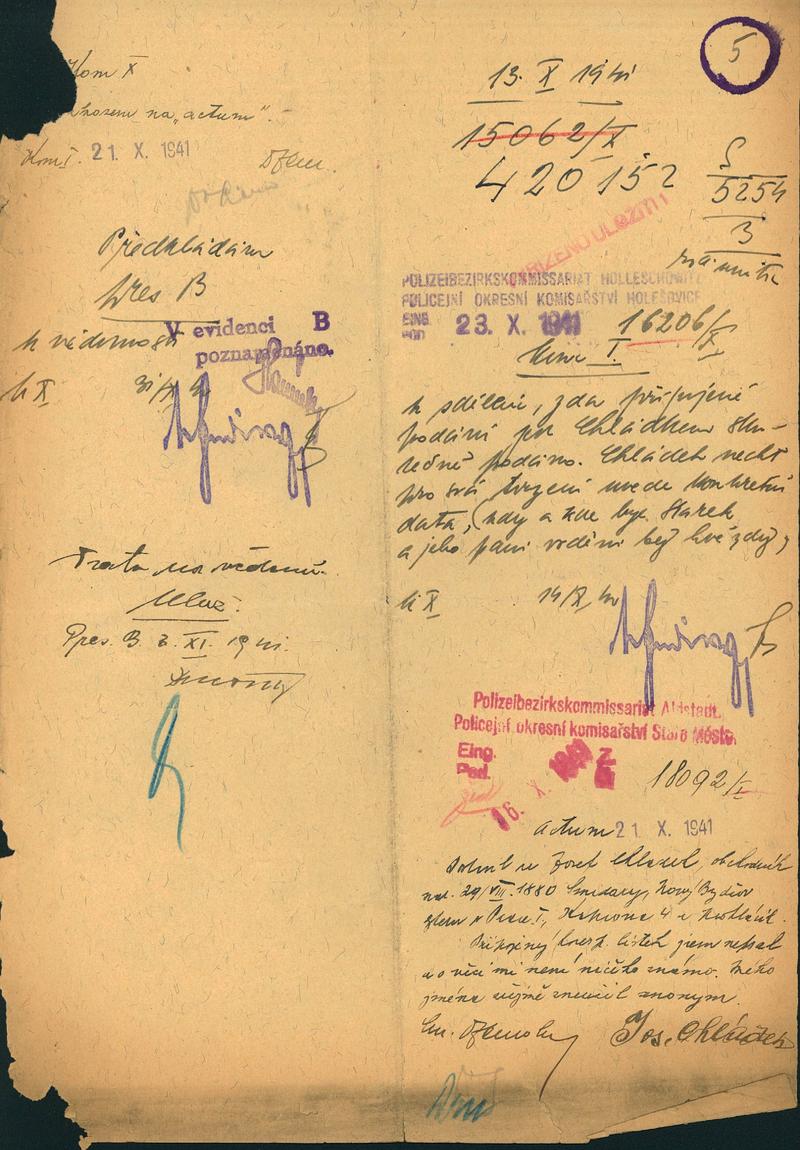 5
Kom X
"actum".-
Kom I. 21 X. 1941
Předkládám
pres B
k vědomosti
V evidenci B
poznamenáno.
k X 31/X 41
Trata na vědomí.
Ulož.
Pres. B. 3. XI. 1941.
13. X 1941
15062/X
420152
S
5254
3
ULOŽITI!
POLIZEIBEZIRKSKOMMISSARIAT HOLLESCHOWITZ
POLICEJNÍ OKRESNÍ KOMISAŘSTVÍ HOLEŠOVICE
EING.
POD. 23. X. 1941 16206/X
Kom I.
k sdělení, zda připojené
podání p. Chládkem sku-
tečně podáno. Chládek nechť
pro svá tvrzení uvede konkretní
data, (kdy a kde byl Starek
a jeho paní viděni bez hvězdy)
k X 14/X 41
Polizeibezirkskommissariat Altstadt.
Policejní okresní komisařství Staré Město.
Eing.
Pod. 16. X. 1941 18092/I
actum 21 X. 1941
Josef Chládek, obchodník
nar. 29/VIII. 1880 Smidary, Nový Bydžov
Praze I, 4
Připojený koresp. lístek jsem nepsal
a o věci mi není ničeho známo. Mého
jména zřejmě zneužil anonym.
Jos. Chládek